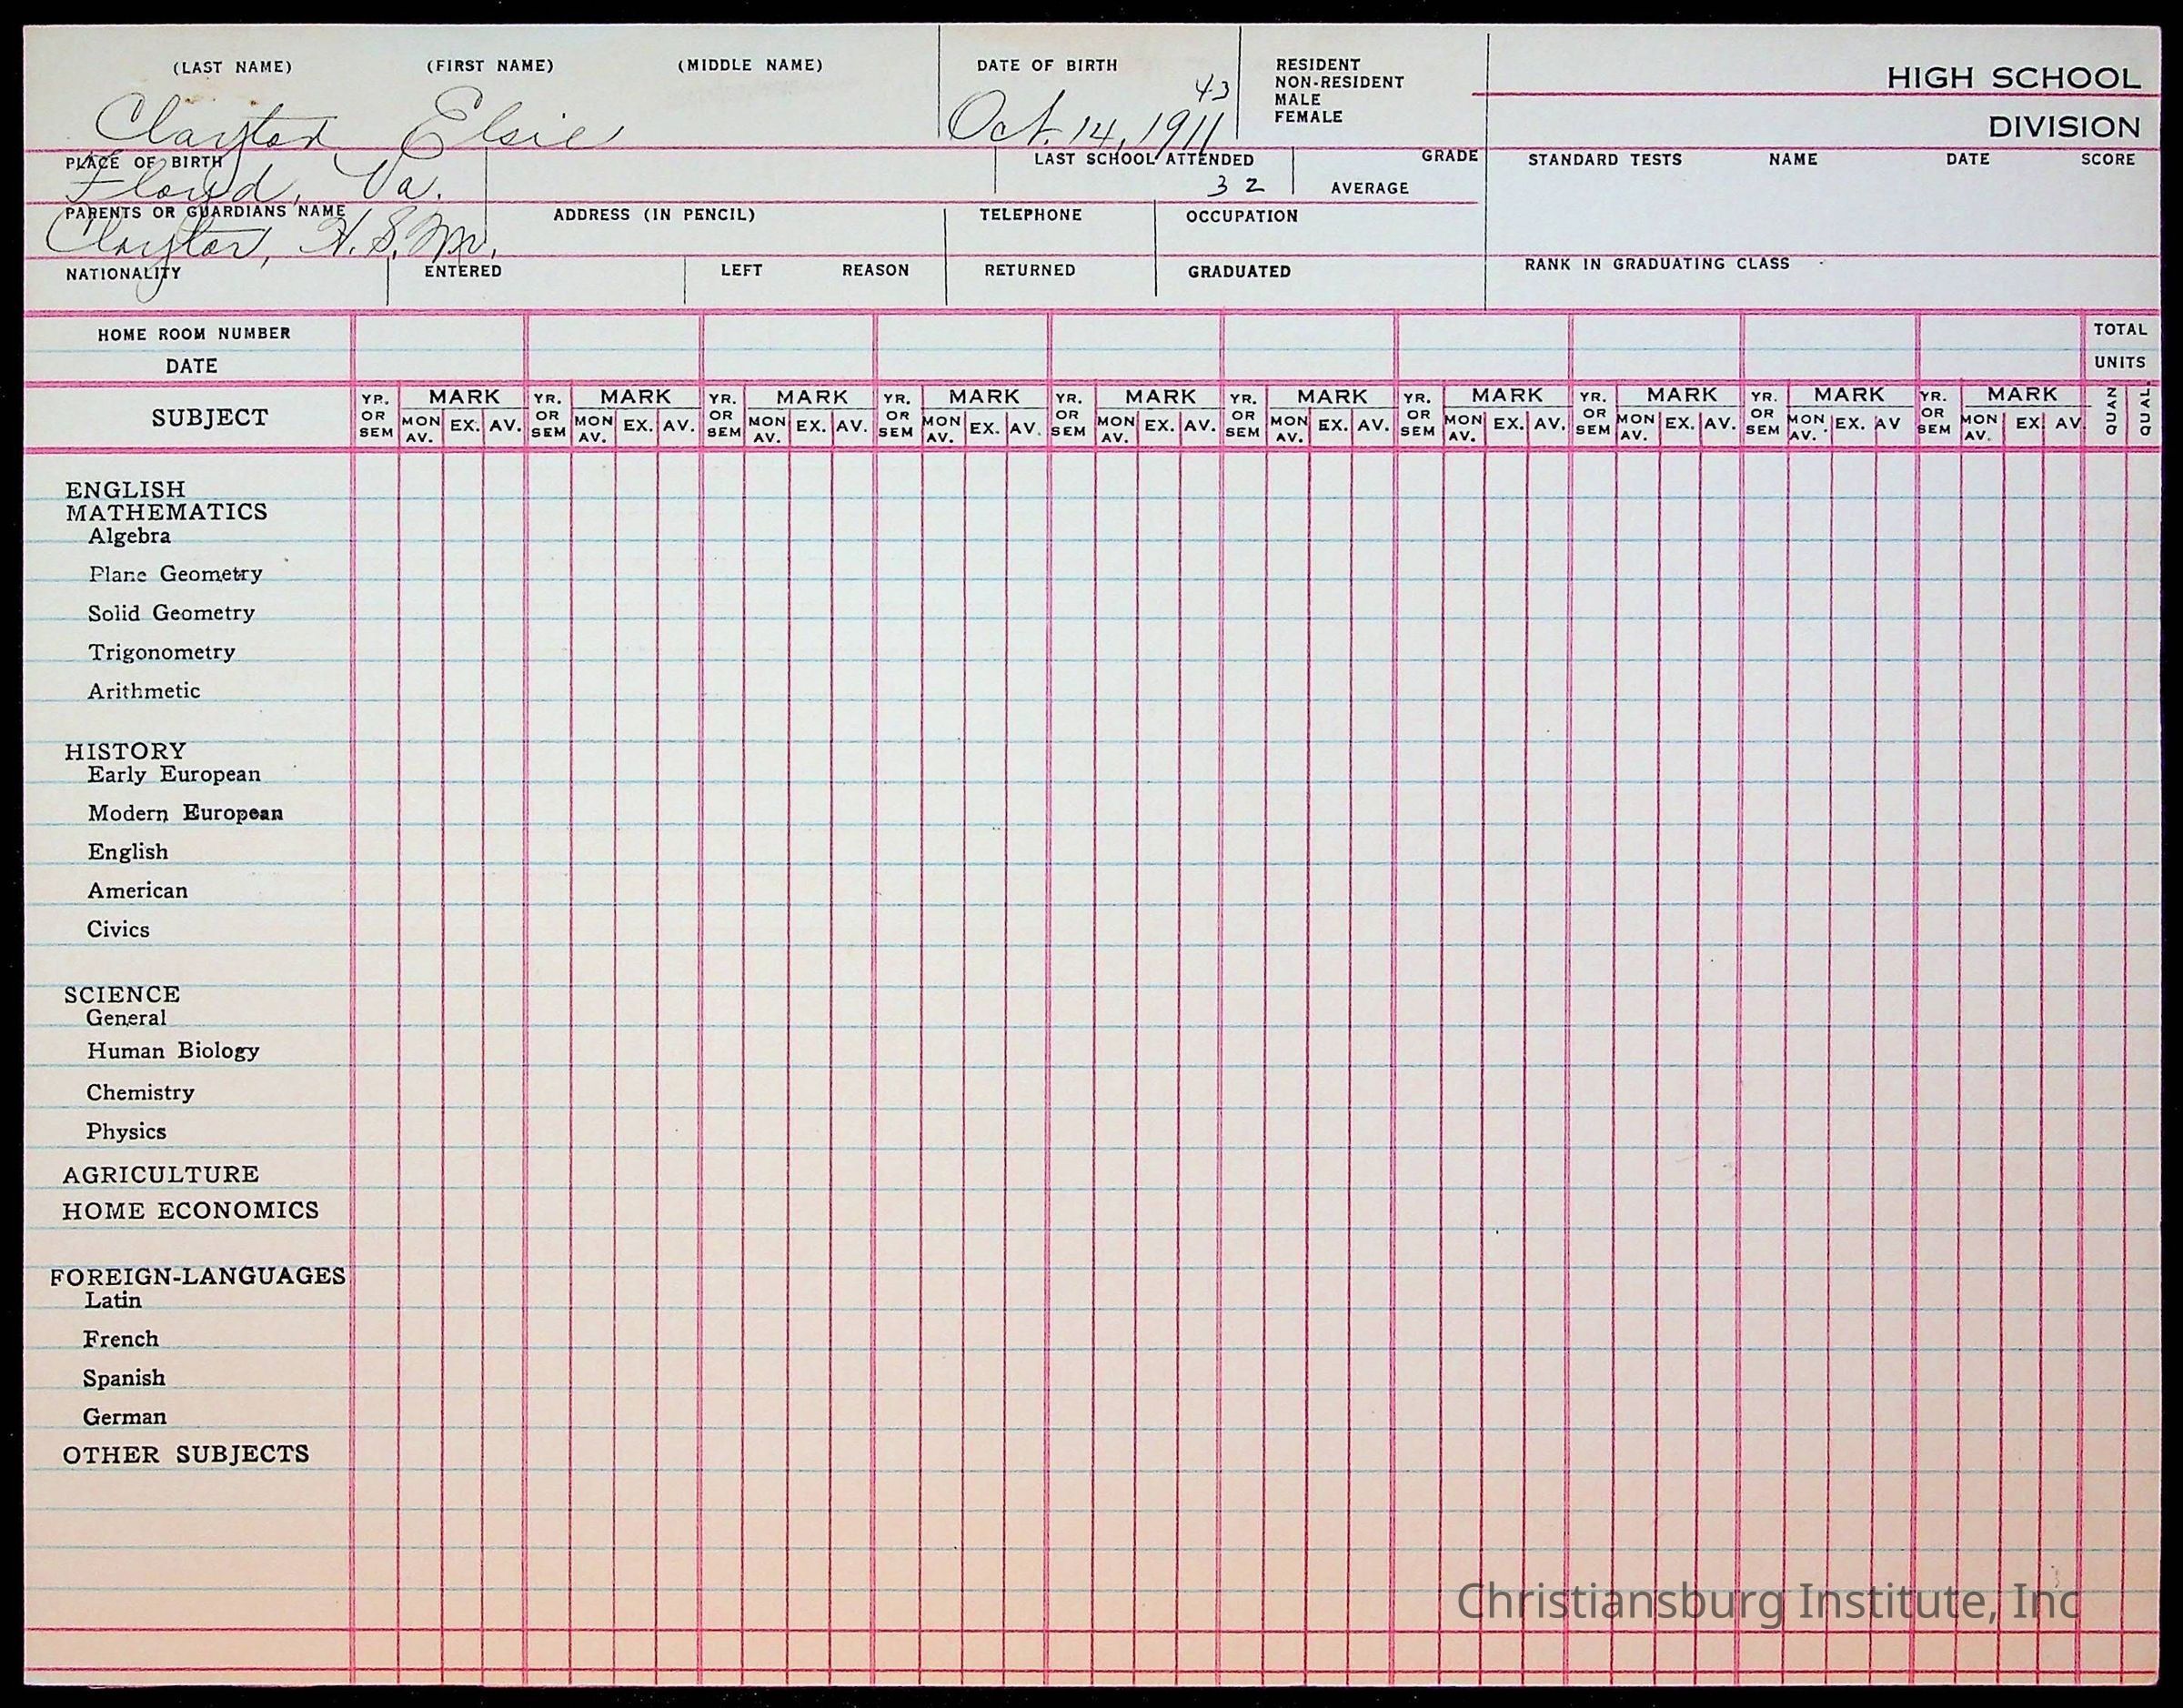 (LAST NAME) (FIRST NAME) (MIDDLE NAME) DATE OF BIRTH RESIDENT
NON-RESIDENT
MALE
FEMALE
HIGH SCHOOL
DIVISION
Claytor Elsie Oct. 14, 1911
43
PLACE OF BIRTH LAST SCHOOL ATTENDED GRADE STANDARD TESTS NAME DATE SCORE
Floyd, Va. 32 AVERAGE
PARENTS OR GUARDIANS NAME ADDRESS (IN PENCIL) TELEPHONE OCCUPATION
Claytor, H. S. Mr.
NATIONALITY ENTERED LEFT REASON RETURNED GRADUATED RANK IN GRADUATING CLASS
HOME ROOM NUMBER TOTAL
DATE UNITS
SUBJECT YR. OR SEM MARK MON AV. EX. AV. YR. OR SEM MARK MON AV. EX. AV. YR. OR SEM MARK MON AV. EX. AV. YR. OR SEM MARK MON AV. EX. AV. YR. OR SEM MARK MON AV. EX. AV. YR. OR SEM MARK MON AV. EX. AV. YR. OR SEM MARK MON AV. EX. AV. YR. OR SEM MARK MON AV. EX. AV. YR. OR SEM MARK MON AV. EX. AV YR. OR SEM MARK MON AV. EX AV QUAN QUAL.
ENGLISH
MATHEMATICS
Algebra
Plane Geometry
Solid Geometry
Trigonometry
Arithmetic
HISTORY
Early European
Modern European
English
American
Civics
SCIENCE
General
Human Biology
Chemistry
Physics
AGRICULTURE
HOME ECONOMICS
FOREIGN-LANGUAGES
Latin
French
Spanish
German
OTHER SUBJECTS
Christiansburg Institute, Inc